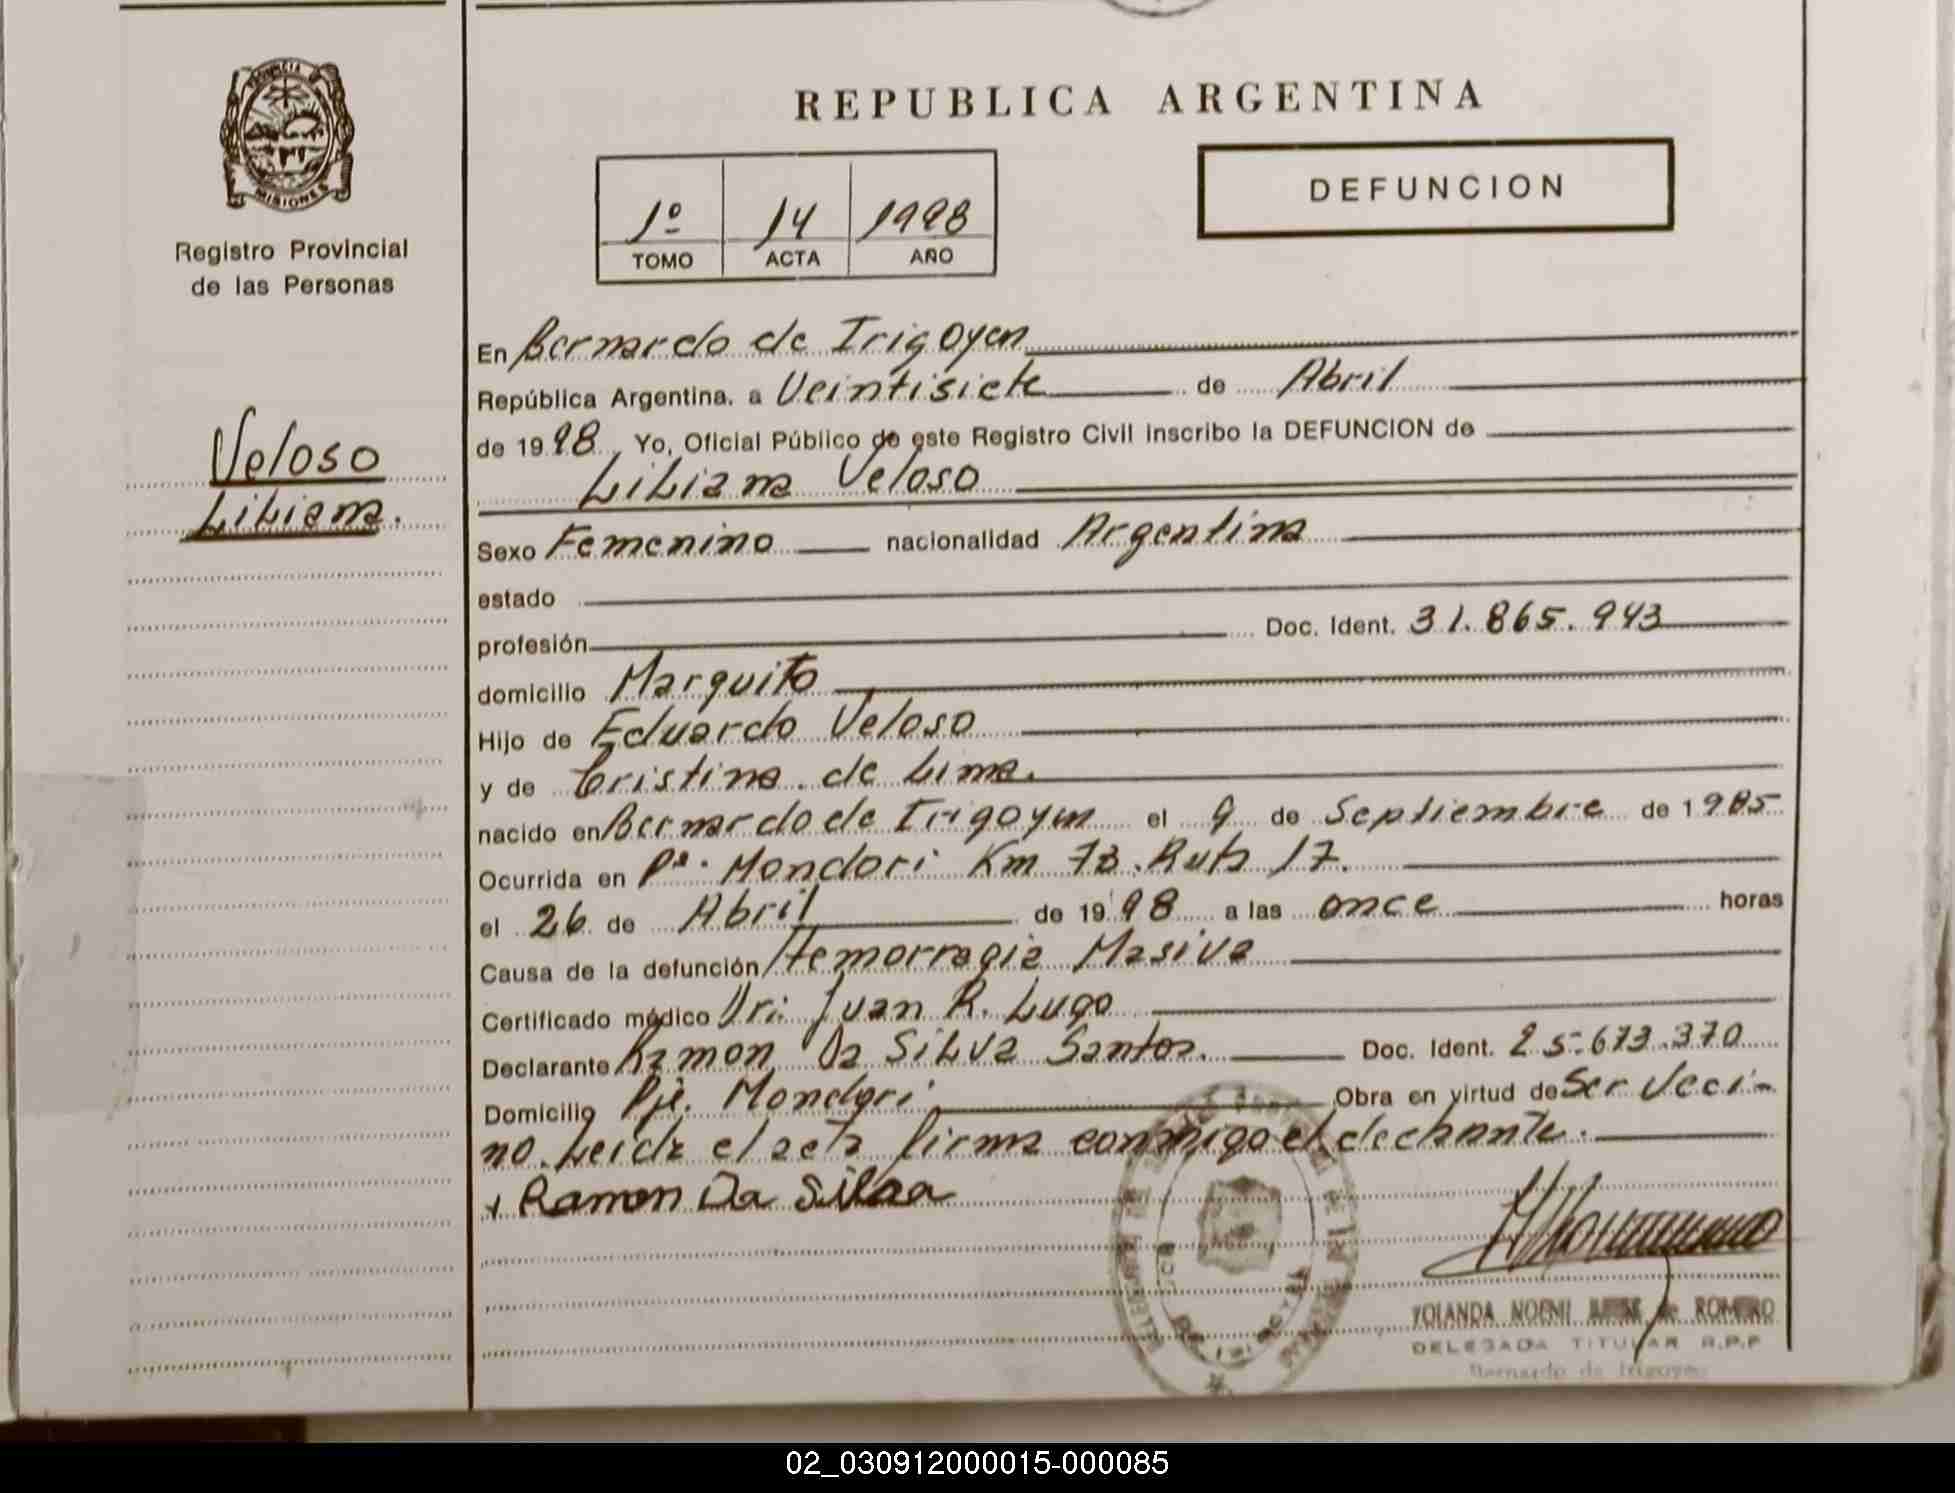 REPUBLICA ARGENTINA
PROVINCIA DE
MISIONES
Registro Provincial
de las Personas
DEFUNCION
1º 14 1998
TOMO ACTA AÑO
Veloso
Liliana.
En Bernardo de Irigoyen
República Argentina, a Veintisiete de Abril
de 1998, Yo, Oficial Público de este Registro Civil inscribo la DEFUNCION de
Liliana Veloso
Sexo Femenino nacionalidad Argentina
estado
profesión Doc. Ident. 31.865.943
domicilio Marquito
Hijo de Eduardo Veloso
y de Cristina de Lima.
nacido en Bernardo de Irigoyen el 9 de Septiembre de 1985
Ocurrida en Pe. Mondori Km 78. Ruta 17.
el 26 de Abril de 1998 a las once horas
Causa de la defunción Hemorragia Masiva
Certificado médico Dr: Juan R. Lugo
Declarante Ramon Da Silva Santos. Doc. Ident. 25.673.370
Domicilio Pje. Mondori Obra en virtud de Ser Veci-
no. Leida el acta firma conmigo el declarante.
+ Ramon Da Silva
YOLANDA NOEMI de ROMERO
DELEGADA TITULAR R.P.P
Bernardo de Irigoyen
02_030912000015-000085